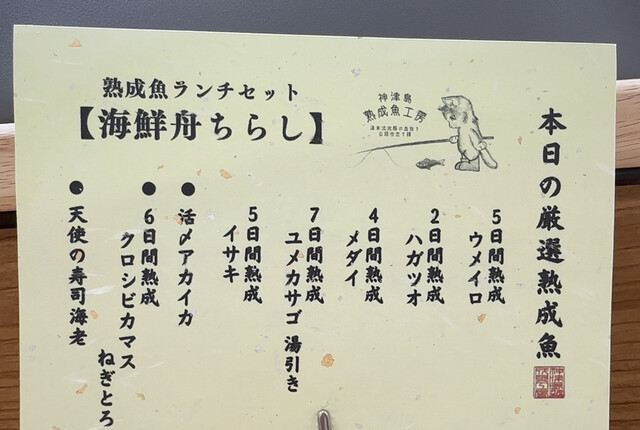 熟成魚ランチセット
【海鮮舟ちらし】
神津島
熟成魚工房
本日の厳選熟成魚
5日間熟成
ウメイロ
2日間熟成
ハガツオ
4日間熟成
メダイ
7日間熟成
ユメカサゴ 湯引き
5日間熟成
イサキ
●活〆アカイカ
●6日間熟成
クロシビカマス
ねぎとろ
●天使の寿司海老